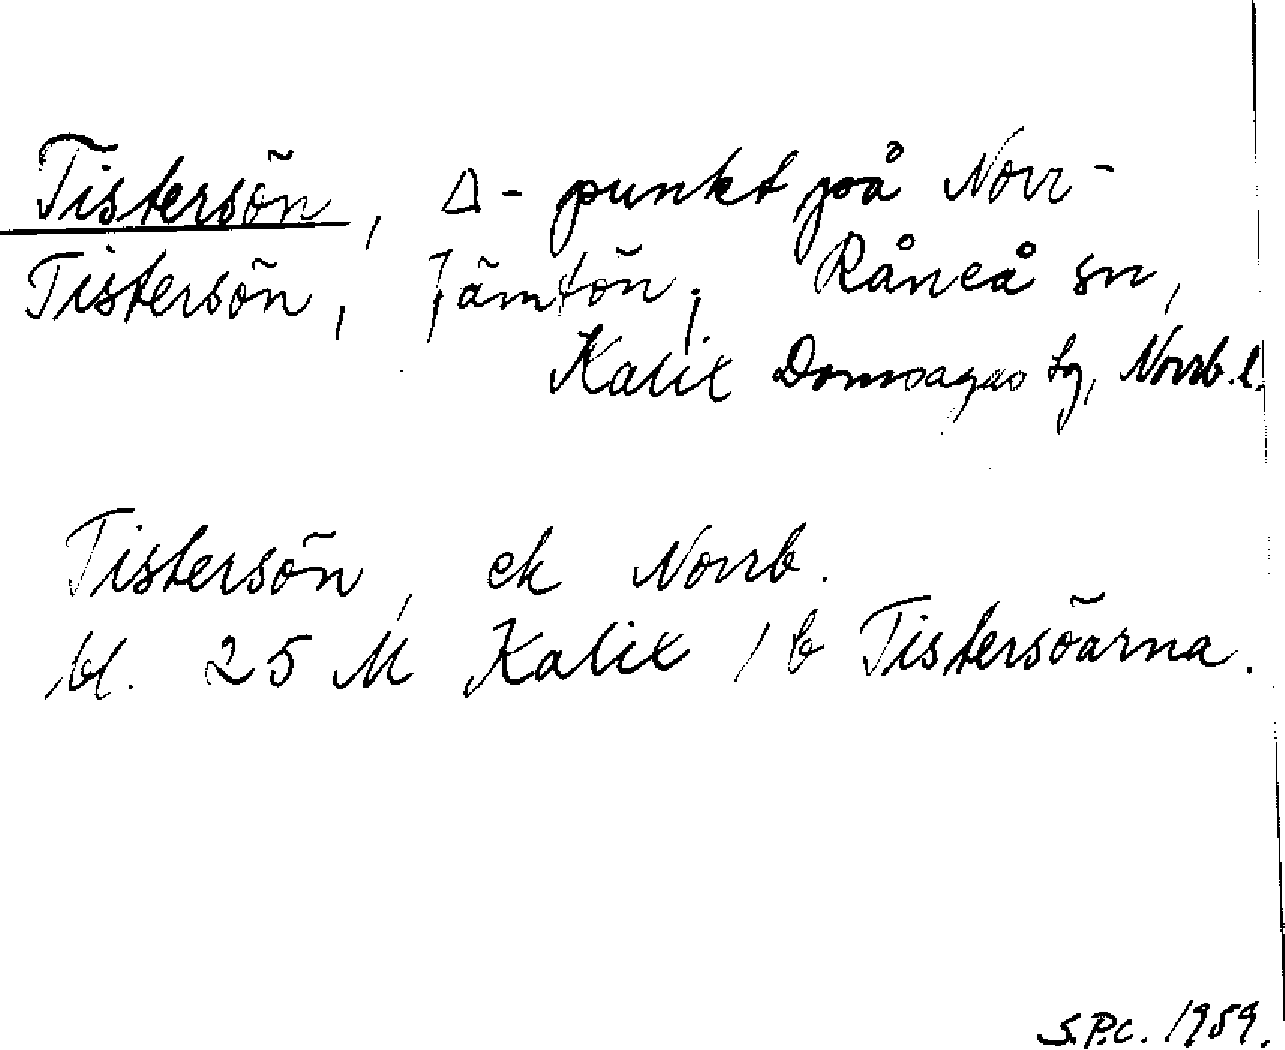 Tistersön, Δ-punkt på Norr-
Tistersön, Jämtön, Råneå sn,
Kalix Domsagas tg, Norrb. l.
Tistersön, ek Norrb.
bl. 25 M Kalix / b Tistersöarna.
S.P.C. 1959.